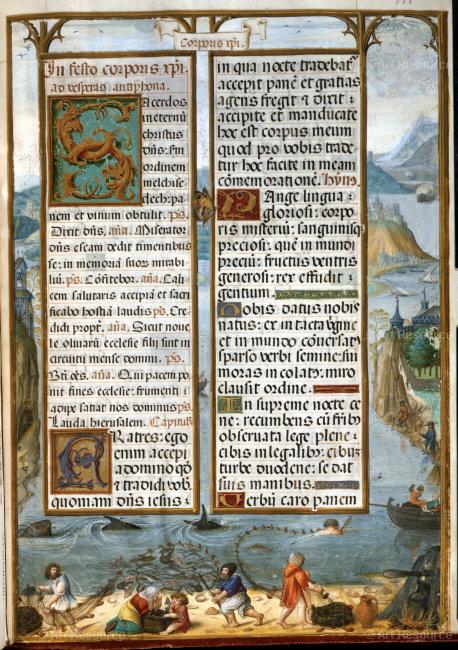 Corporis xp̄i.
In festo corporis xp̄i.
ad vesperas antiphona.
Sacerdos
in eternū
christus
dn̄s: scd̄m
ordinem
melchise
dech: pa
nem et vinum obtulit. p̄s.
Dixit dn̄s. an̄a. Miserator
dn̄s escam dedit timentibus
se: in memoriā suor mirabi
liū. p̄s. Cōfitebor. an̄a. Cali
cem salutaris accipiā et sacri
ficabo hostiā laudis p̄s. Cre
didi propt̄. an̄a. Sicut noue
le oliuarū ecclesie filij sint in
circuitu mense domini. p̄s.
Bt̄i oēs. an̄a. Qui pacem po
nit fines ecclesie: frumenti
adipe satiat nos dominus p̄s.
Lauda hierusalem. Capitulū
Fratres: ego
enim accepi
a domino qd̄
et tradidi vob.
quoniam dn̄s iesus:
in qua nocte tradebat̄
accepit panē et gratias
agens fregit & dixit:
accipite et manducate
hoc est corpus meum
quod pro vobis trade
tur hoc facite in meam
cōmemorationē. Hỹm.
Pange lingua
gloriosi: corpo
ris misteriū: sanguinisq̄
preciosi: quē in mundi
preciū: fructus ventris
generosi: rex effudit
gentium.
Nobis datus nobis
natus: ex intacta v̄gine
et in mundo cōuersat̄
sparso verbi semine: sui
moras incolat̄: miro
clausit ordine.
In supreme nocte ce
ne: recumbens cū fr̄ib
obseruata lege plene:
cibis in legalib: cibū
turbe duodene: se dat
suis manibus.
Verbū caro panem
Art Resource